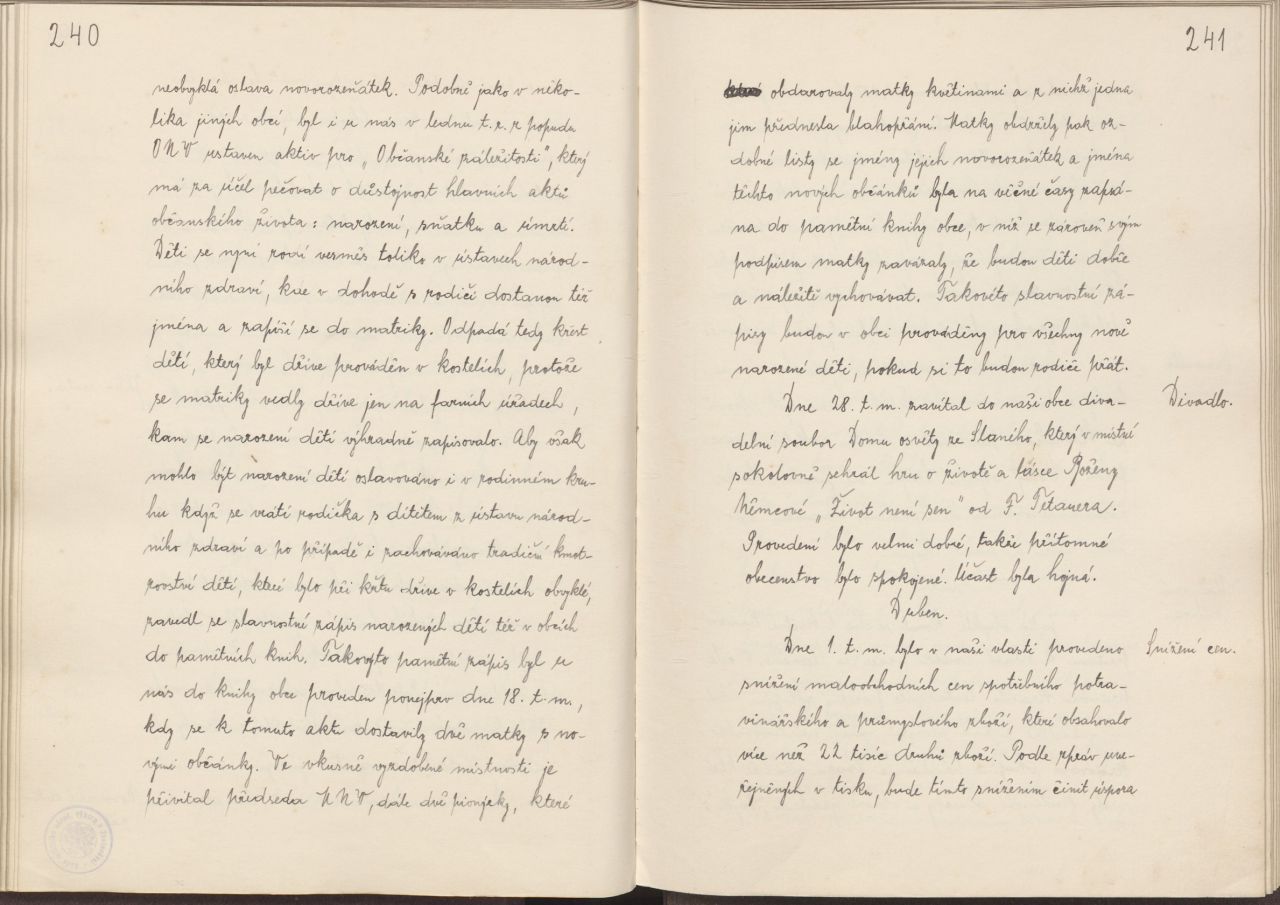 240
neobyklá oslava novorozeňátek. Podobně jako v něko-
lika jiných obcí, byl i u nás v lednu t. r. z popudu
ONV ustaven aktiv pro „Občanské záležitosti", který
má za účel pečovat o důstojnost hlavních aktů
občanského života: narození, sňatku a úmrtí.
Děti se nyní rodí vesměs toliko v ústavech národ-
ního zdraví, kde v dohodě s rodiči dostanou též
jména a zapíší se do matriky. Odpadá tedy křest
dětí, který byl dříve prováděn v kostelích, protože
se matriky vedly dříve jen na farních úřadech,
kam se narození dětí výhradně zapisovalo. Aby však
mohlo být narození dětí oslavováno i v rodinném kru-
hu když se vrátí rodička s dítětem z ústavu národ-
ního zdraví a po případě i zachováváno tradiční kmot-
rovství dětí, které bylo při křtu dříve v kostelích obvyklé,
zavedl se slavnostní zápis narozených dětí též v obcích
do pamětních knih. Takovýto pamětní zápis byl u
nás do knihy obce proveden ponejprv dne 18. t. m.,
kdy se k tomuto aktu dostavily dvě matky s no-
vými občánky. Ve vkusně vyzdobené místnosti je
přivítal předseda MNV, dále dvě pionýrky, které
241
obdarovaly matky květinami a z nichž jedna
jim přednesla blahopřání. Matky obdržely pak oz-
dobné listy se jmény jejich novorozeňátek a jména
těchto nových občánků byla na věčné časy zapsá-
na do pamětní knihy obce, v níž se zároveň svým
podpisem matky zavázaly, že budou děti dobře
a náležitě vychovávat. Takovéto slavnostní zá-
pisy budou v obci prováděny pro všechny nově
narozené děti, pokud si to budou rodiče přát.
Dne 28. t. m. zavítal do naší obce diva-
Divadlo.
delní soubor Domu osvěty ze Slaného, který v místní
sokolovně sehrál hru o životě a lásce Boženy
Němcové „Život není sen" od F. Tetauera.
Provedení bylo velmi dobré, takže přítomné
obecenstvo bylo spokojené. Účast byla hojná.
Duben.
Dne 1. t. m. bylo v naší vlasti provedeno
Snížení cen.
snížení maloobchodních cen spotřebního potra-
vinářského a průmyslového zboží, které obsahovalo
více než 22 tisíc druhů zboží. Podle zpráv uve-
řejněných v tisku, bude tímto snížením činit úspora